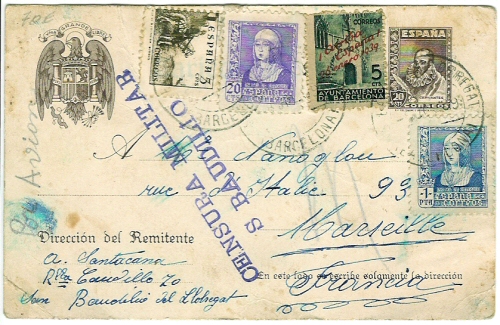 UNA GRANDE LIBRE
ESPAÑA
5
20
ESPAÑA
CORREOS
CORREOS
5
AYUNTAMIENTO
DE BARCELONA
ESPAÑA
20
CORREOS
BARCELONA
Por Avion
CENSURA MILITAR
S BAUDILIO
A M Nanoglou
rue d'Italie 93
Marseille
Francia
1
PTA
CORREOS
Dirección del Remitente
A. Santacana
San Baudilio del Llobregat
En este lado se escribe solamente la dirección